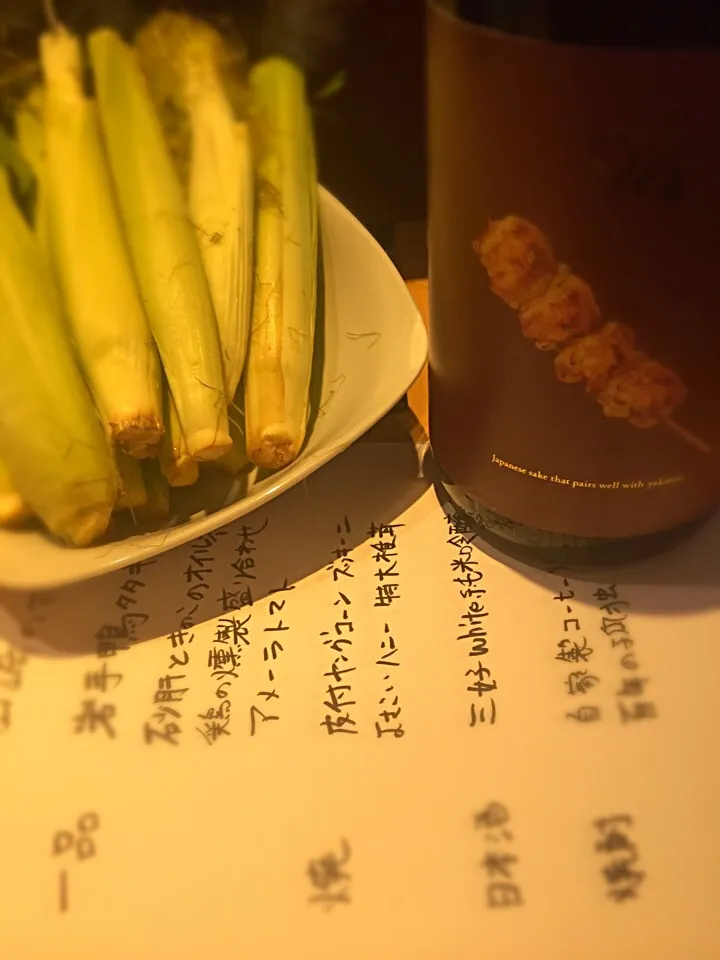 Japanese sake that pairs well with yakitori
一品
岩手鴨タタキ
砂肝ときのこのオイル
鶏の燻製盛り合わせ
アメーラトマト
焼
皮付ヤングコーン ズッキーニ
ハニー 特大椎茸
日本酒
三好 white 純米吟醸
焼酎
自家製コーヒー
百年の孤独